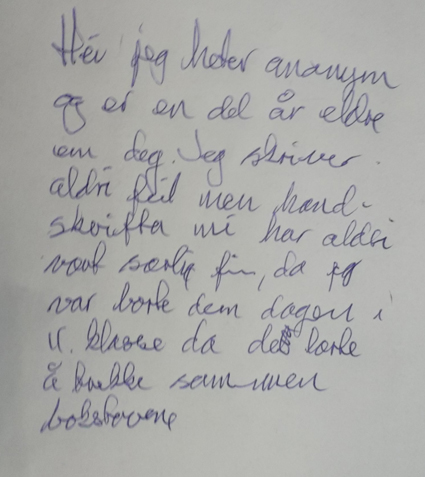 Hei jeg heter ananym
og er en del år eldre
enn deg. Jeg skriver
aldri feil men hand-
skrifta mi har aldri
vært særlig fin, da jeg
var borte dem dagen i
1. klasse da de lærte
å trekke sammen
bokstavene